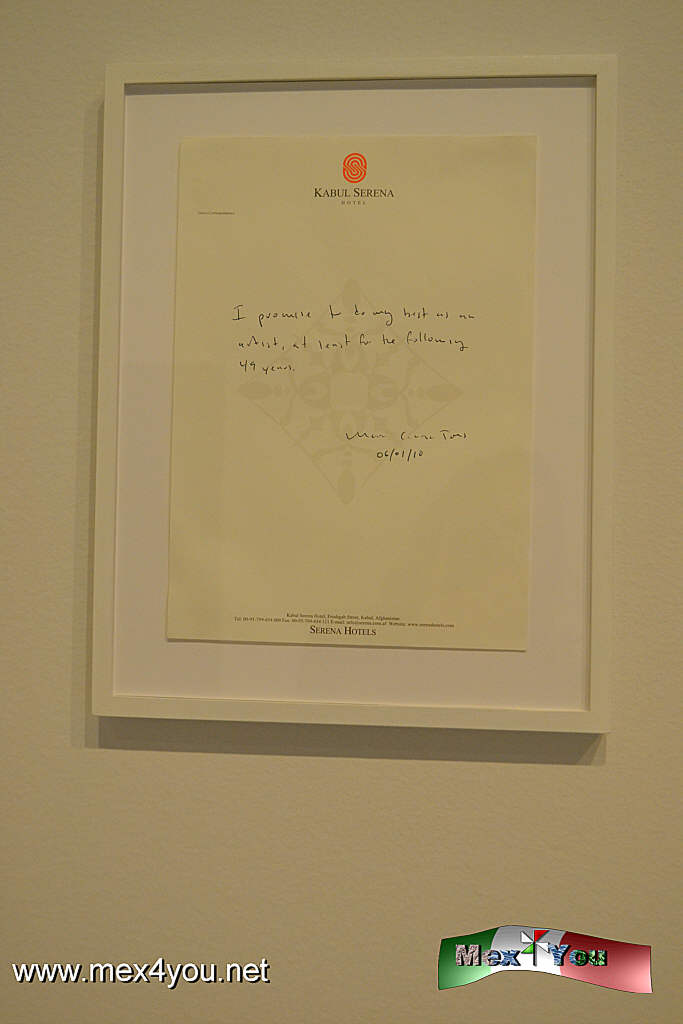 KABUL SERENA
HOTEL
I promise to do my best as an
artist, at least for the following
49 years.
06/01/10
Kabul Serena Hotel, Froshgah Street, Kabul, Afghanistan
SERENA HOTELS
www.mex4you.net
Mex4You